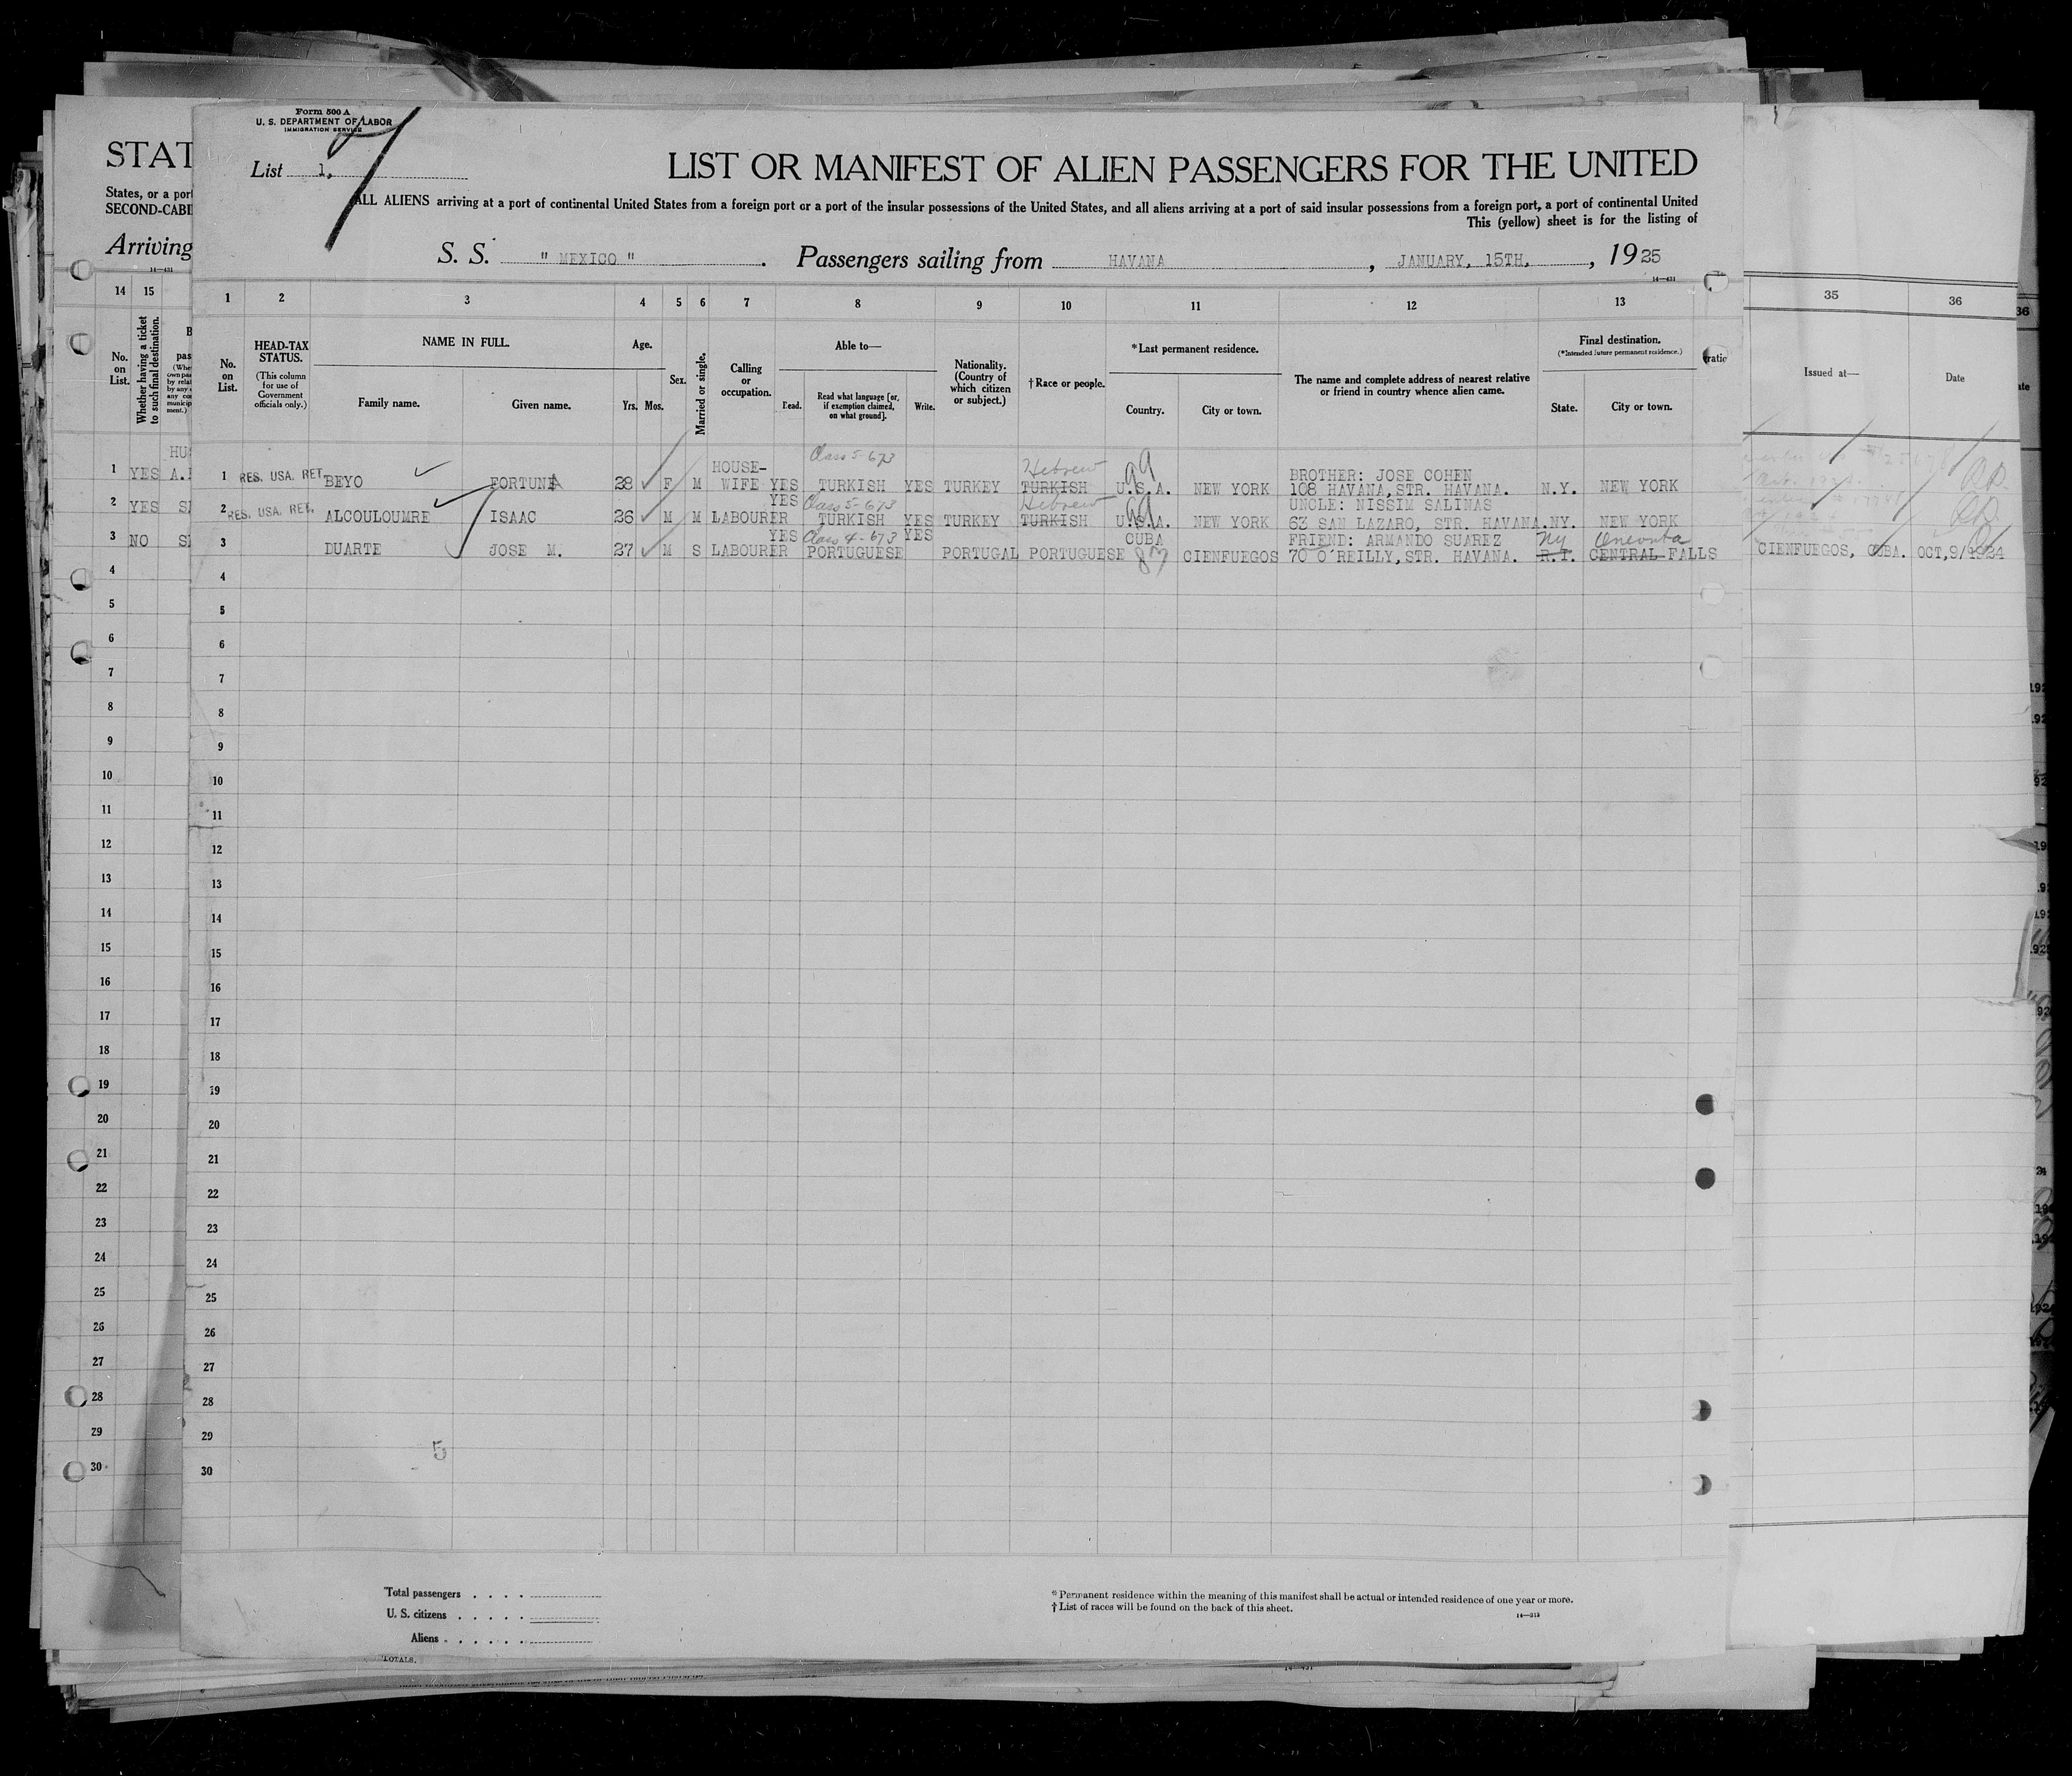 Form 500 A
U. S. DEPARTMENT OF LABOR
IMMIGRATION SERVICE
List 1.
LIST OR MANIFEST OF ALIEN PASSENGERS FOR THE UNITED
ALL ALIENS arriving at a port of continental United States from a foreign port or a port of the insular possessions of the United States, and all aliens arriving at a port of said insular possessions from a foreign port, a port of continental United
This (yellow) sheet is for the listing of
S. S. " MEXICO " . Passengers sailing from HAVANA , JANUARY, 15TH. , 1925
14—431
STAT
States, or a port
SECOND-CABI
Arriving
14—431
14 15
No. on List.
Whether having a ticket to such final destination.
1 2 3 4 5 6 7 8 9 10 11 12 13
No. on List.
HEAD-TAX STATUS.
(This column for use of Government officials only.)
NAME IN FULL.
Family name. Given name.
Age.
Yrs. Mos.
Sex.
Married or single.
Calling or occupation.
Able to—
Read. Read what language [or, if exemption claimed, on what ground]. Write.
Nationality. (Country of which citizen or subject.)
†Race or people.
*Last permanent residence.
Country. City or town.
The name and complete address of nearest relative or friend in country whence alien came.
Final destination.
(*Intended future permanent residence.)
State. City or town.
35 36
Issued at— Date
HU
1 YES A.
2 YES
3 NO
Class 5-673
HOUSE- Hebrew BROTHER: JOSE COHEN
1 RES. USA. RET. BEYO FORTUNA 28 F M WIFE YES TURKISH YES TURKEY TURKISH U.S.A. NEW YORK 108 HAVANA,STR. HAVANA. N.Y. NEW YORK
YES Class 5-673 Hebrew UNCLE: NISSIM SALINAS
2 RES. USA. RET. ALCOULOUMRE ISAAC 26 M M LABOURER TURKISH YES TURKEY TURKISH U.S.A. NEW YORK 63 SAN LAZARO, STR. HAVANA. NY. NEW YORK
YES Class 4-673 YES CUBA FRIEND: ARMANDO SUAREZ Ny Oneonta
3 DUARTE JOSE M. 27 M S LABOURER PORTUGUESE PORTUGAL PORTUGUESE CIENFUEGOS 70 O'REILLY,STR. HAVANA. R.I. CENTRAL FALLS CIENFUEGOS, CUBA. OCT,9/1924
4
5
6
7
8
9
10
11
12
13
14
15
16
17
18
19
20
21
22
23
24
25
26
27
28
29
30
5
Total passengers . . . .
U. S. citizens . . . . .
Aliens . . . . . .
*Permanent residence within the meaning of this manifest shall be actual or intended residence of one year or more.
†List of races will be found on the back of this sheet.
14—313
TOTALS.
14—431